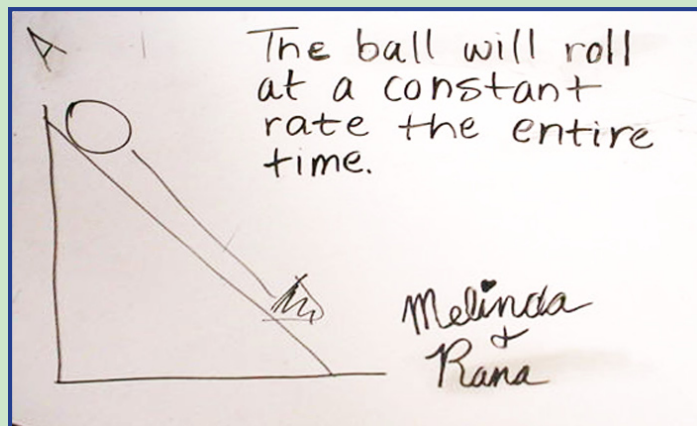 A
The ball will roll
at a constant
rate the entire
time.
Melinda
+
Rana